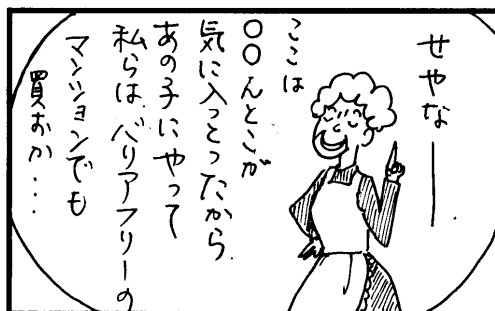 せやなー
ここは
○○んとこが
気に入っとったから
あの子にやって
私らは、バリアフリーの
マンションでも
買おか・・・